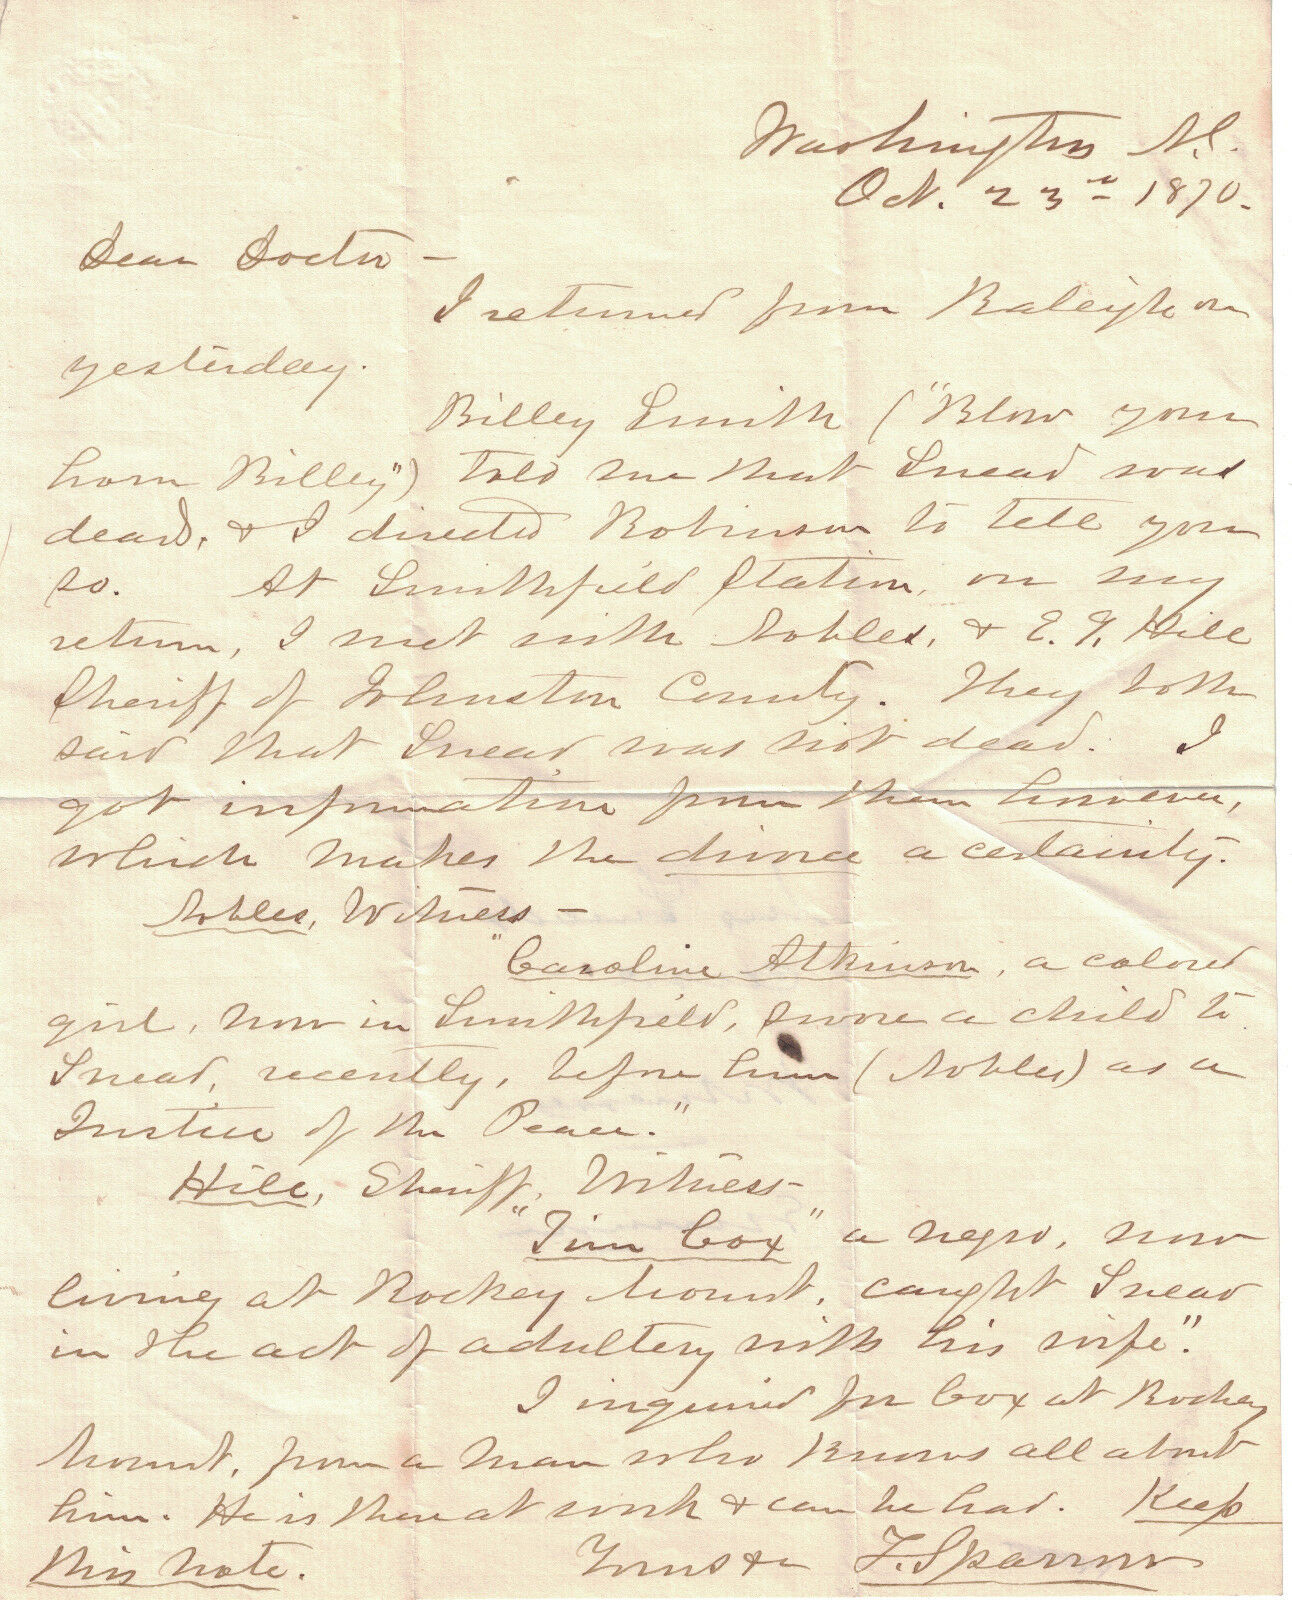 Washington N.C.
Oct. 23rd 1870.
Dear Doctor –
I returned from Raleigh on
yesterday.
Billey Smith ("Blow your
horn Billey") told me that Snead was
dead, & I directed Robinson to tell you
so. At Smithfield Station, on my
return, I met with Nobles, & E. J. Hill
Sheriff of Johnston County. They both
said that Snead was not dead. I
got information from them however,
which makes the divorce a certainty.
Nobles, Witness –
"Caroline Atkinson, a colored
girl, now in Smithfield, swore a child to
Snead, recently, before him (Nobles) as a
Justice of the Peace."
Hill, Sheriff, Witness –
"Tim Cox" a negro, now
living at Rockey Mount, caught Snead
in the act of adultery with his wife".
I inquired for Cox at Rockey
Mount, from a man who knows all about
him. He is there at work & can be had. Keep
this note. Yours &c T. Sparrow